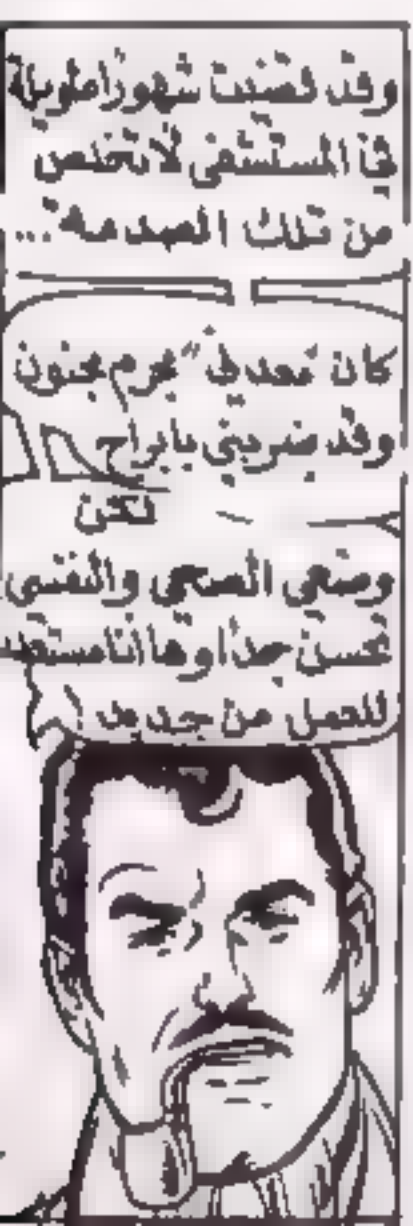 وقد قضيت شهورا طويلة
في المستشفى لأتخلص
من تلك الصدمة...
كان مجرم مجنون
وقد ضربني بابراج
لكن
وضعي الصحي والنفسي
تحسن جدا وها انا مستعد
للعمل من جديد !